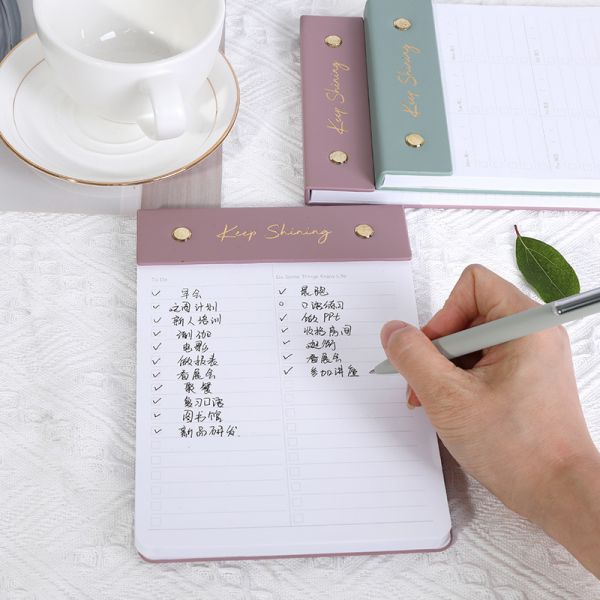 Keep Shining
Keep Shining
Keep Shining
To Do
早会
这周计划
新人培训
电影
做报表
看展会
聚餐
复习口语
图书馆
新品研发
Do Some Things Enjoy Life
晨跑
口语练习
做PPt
收拾房间
逛街
看展会
参加讲座